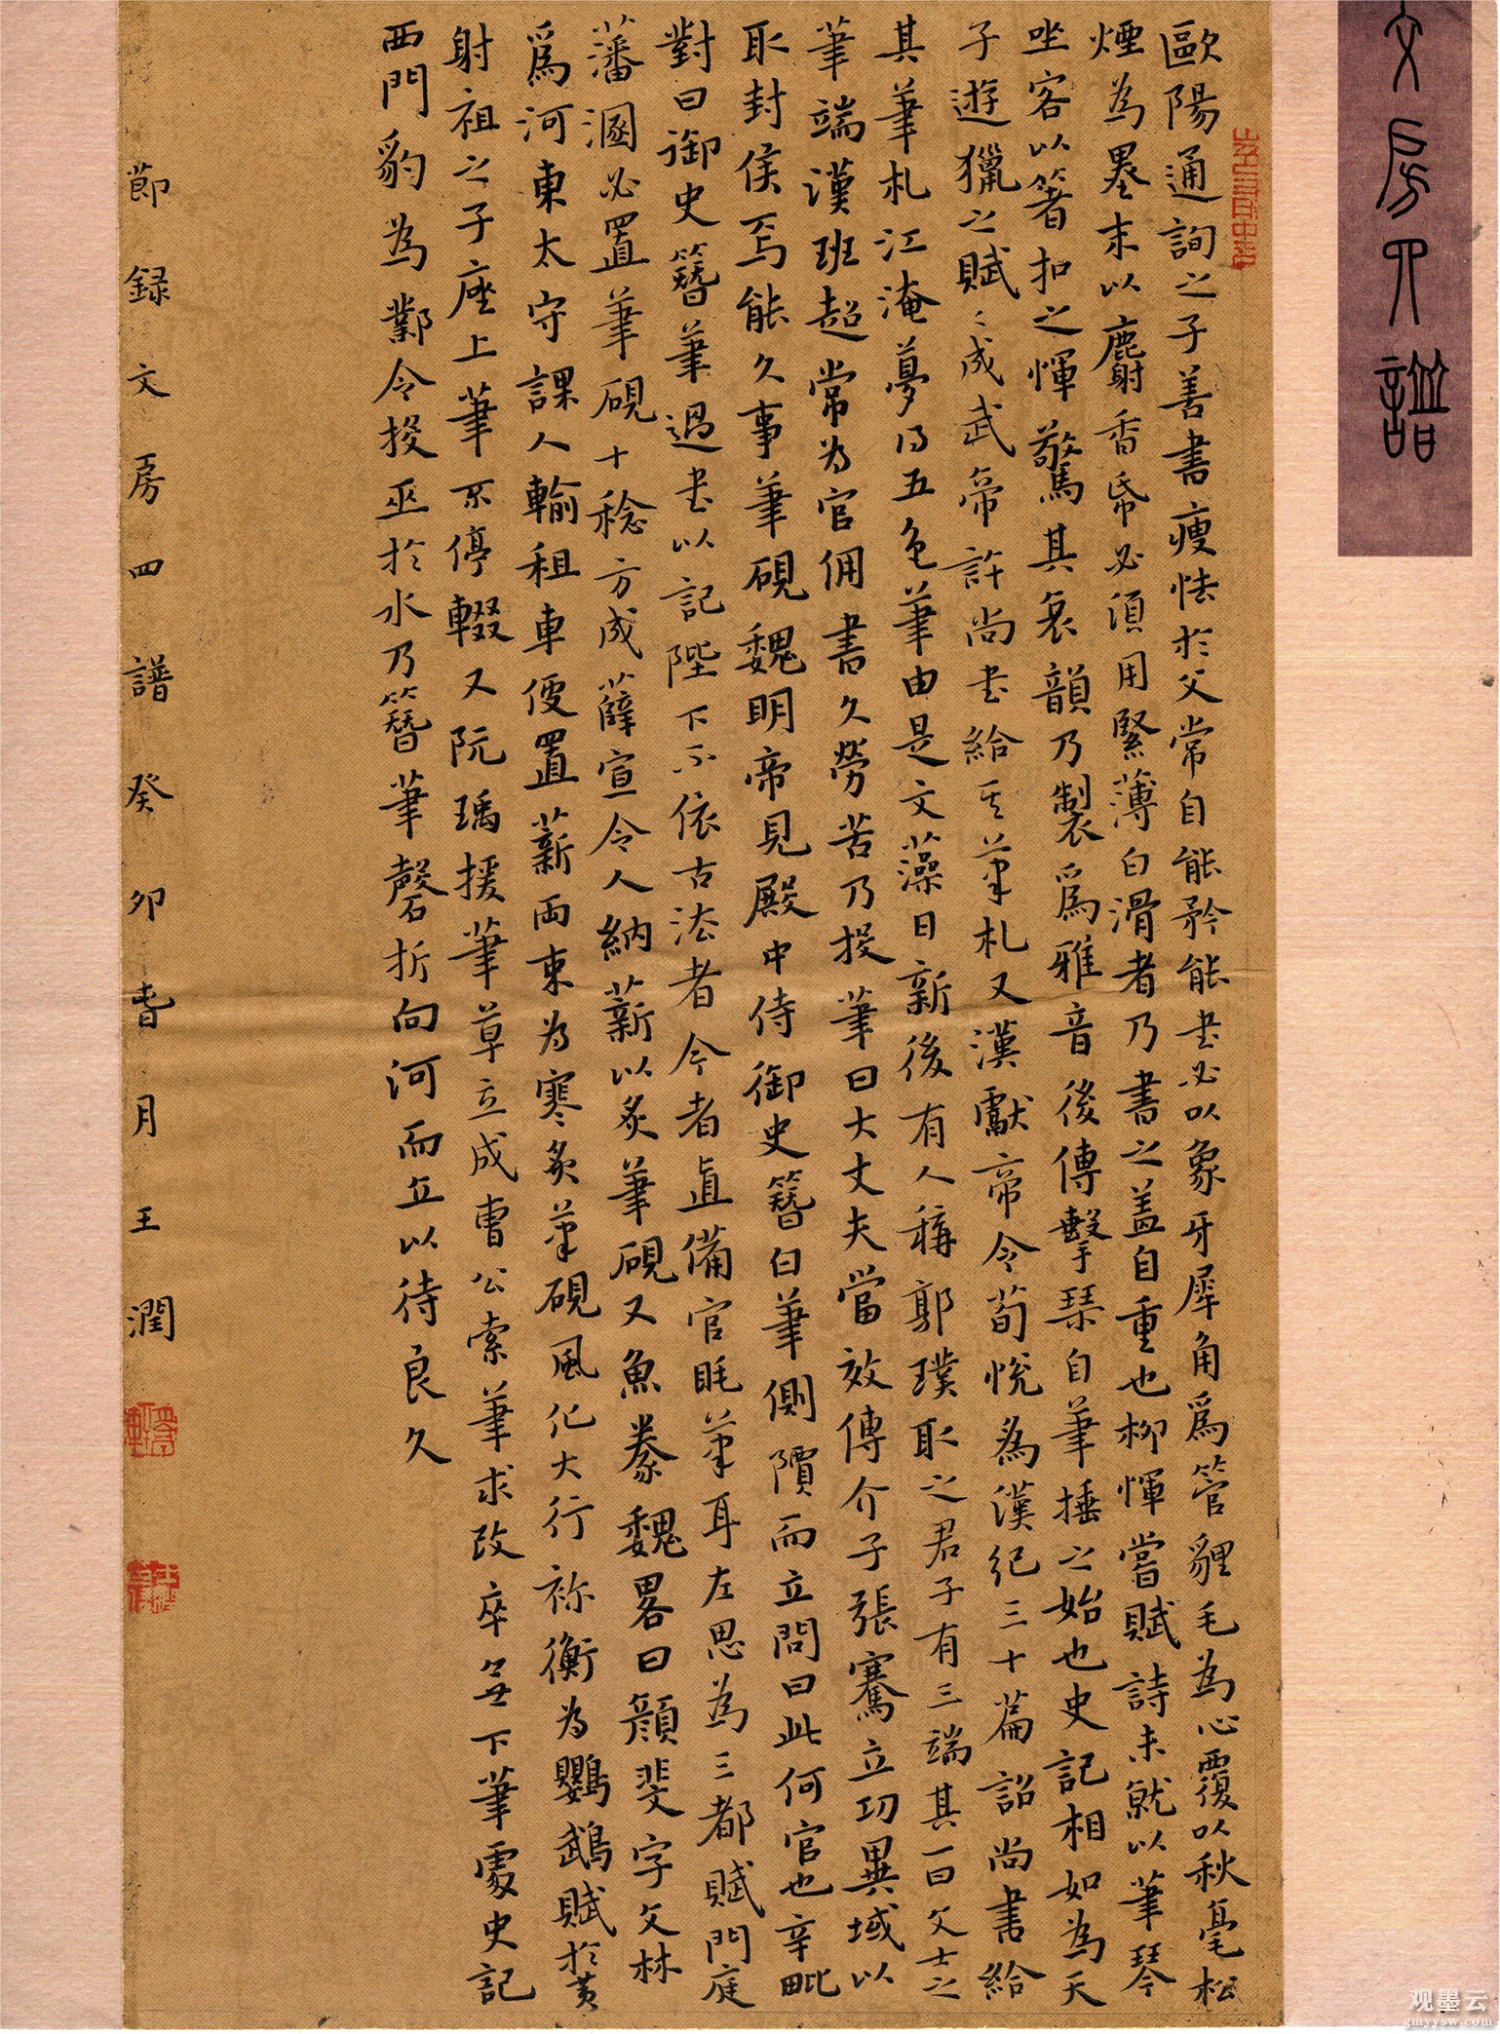 文房四譜
歐陽通詢之子善書瘦怯於父常自能矜能書必以象牙犀角爲管貍毛為心覆以秋毫松
煙為墨末以麝香帋必須用緊薄白滑者乃書之盖自重也柳惲嘗賦詩未就以筆琴
坐客以箸扣之惲驚其哀韻乃製爲雅音後傳擊琴自筆捶之始也史記相如為天
子遊獵之賦〻成武帝許尚書給其筆札又漢獻帝令荀悅為漢紀三十篇詔尚書給
其筆札江淹夢得五色筆由是文藻日新後有人稱郭璞取之君子有三端其一曰文士之
筆端漢班超常為官佣書久勞苦乃投筆曰大丈夫當效傅介子張騫立功異域以
取封侯焉能久事筆硯魏明帝見殿中侍御史簪白筆側隫而立問曰此何官也辛毗
對曰御史簪筆過書以記陛下不依古法者今者直備官眊筆耳左思為三都賦門庭
藩溷必置筆硯十稔方成薛宣令人納薪以炙筆硯又魚豢魏畧曰顏斐字文林
爲河東太守課人輸租車便置薪兩束為寒炙筆硯風化大行祢衡為鸚鵡賦於黃
射祖之子座上筆不停輟又阮瑀援筆草立成曹公索筆求改卒無下筆處史記
西門豹為鄴令投巫於水乃簪筆磬折向河而立以待良久
節録文房四譜癸卯春月王潤
观墨云
gmyysw.com